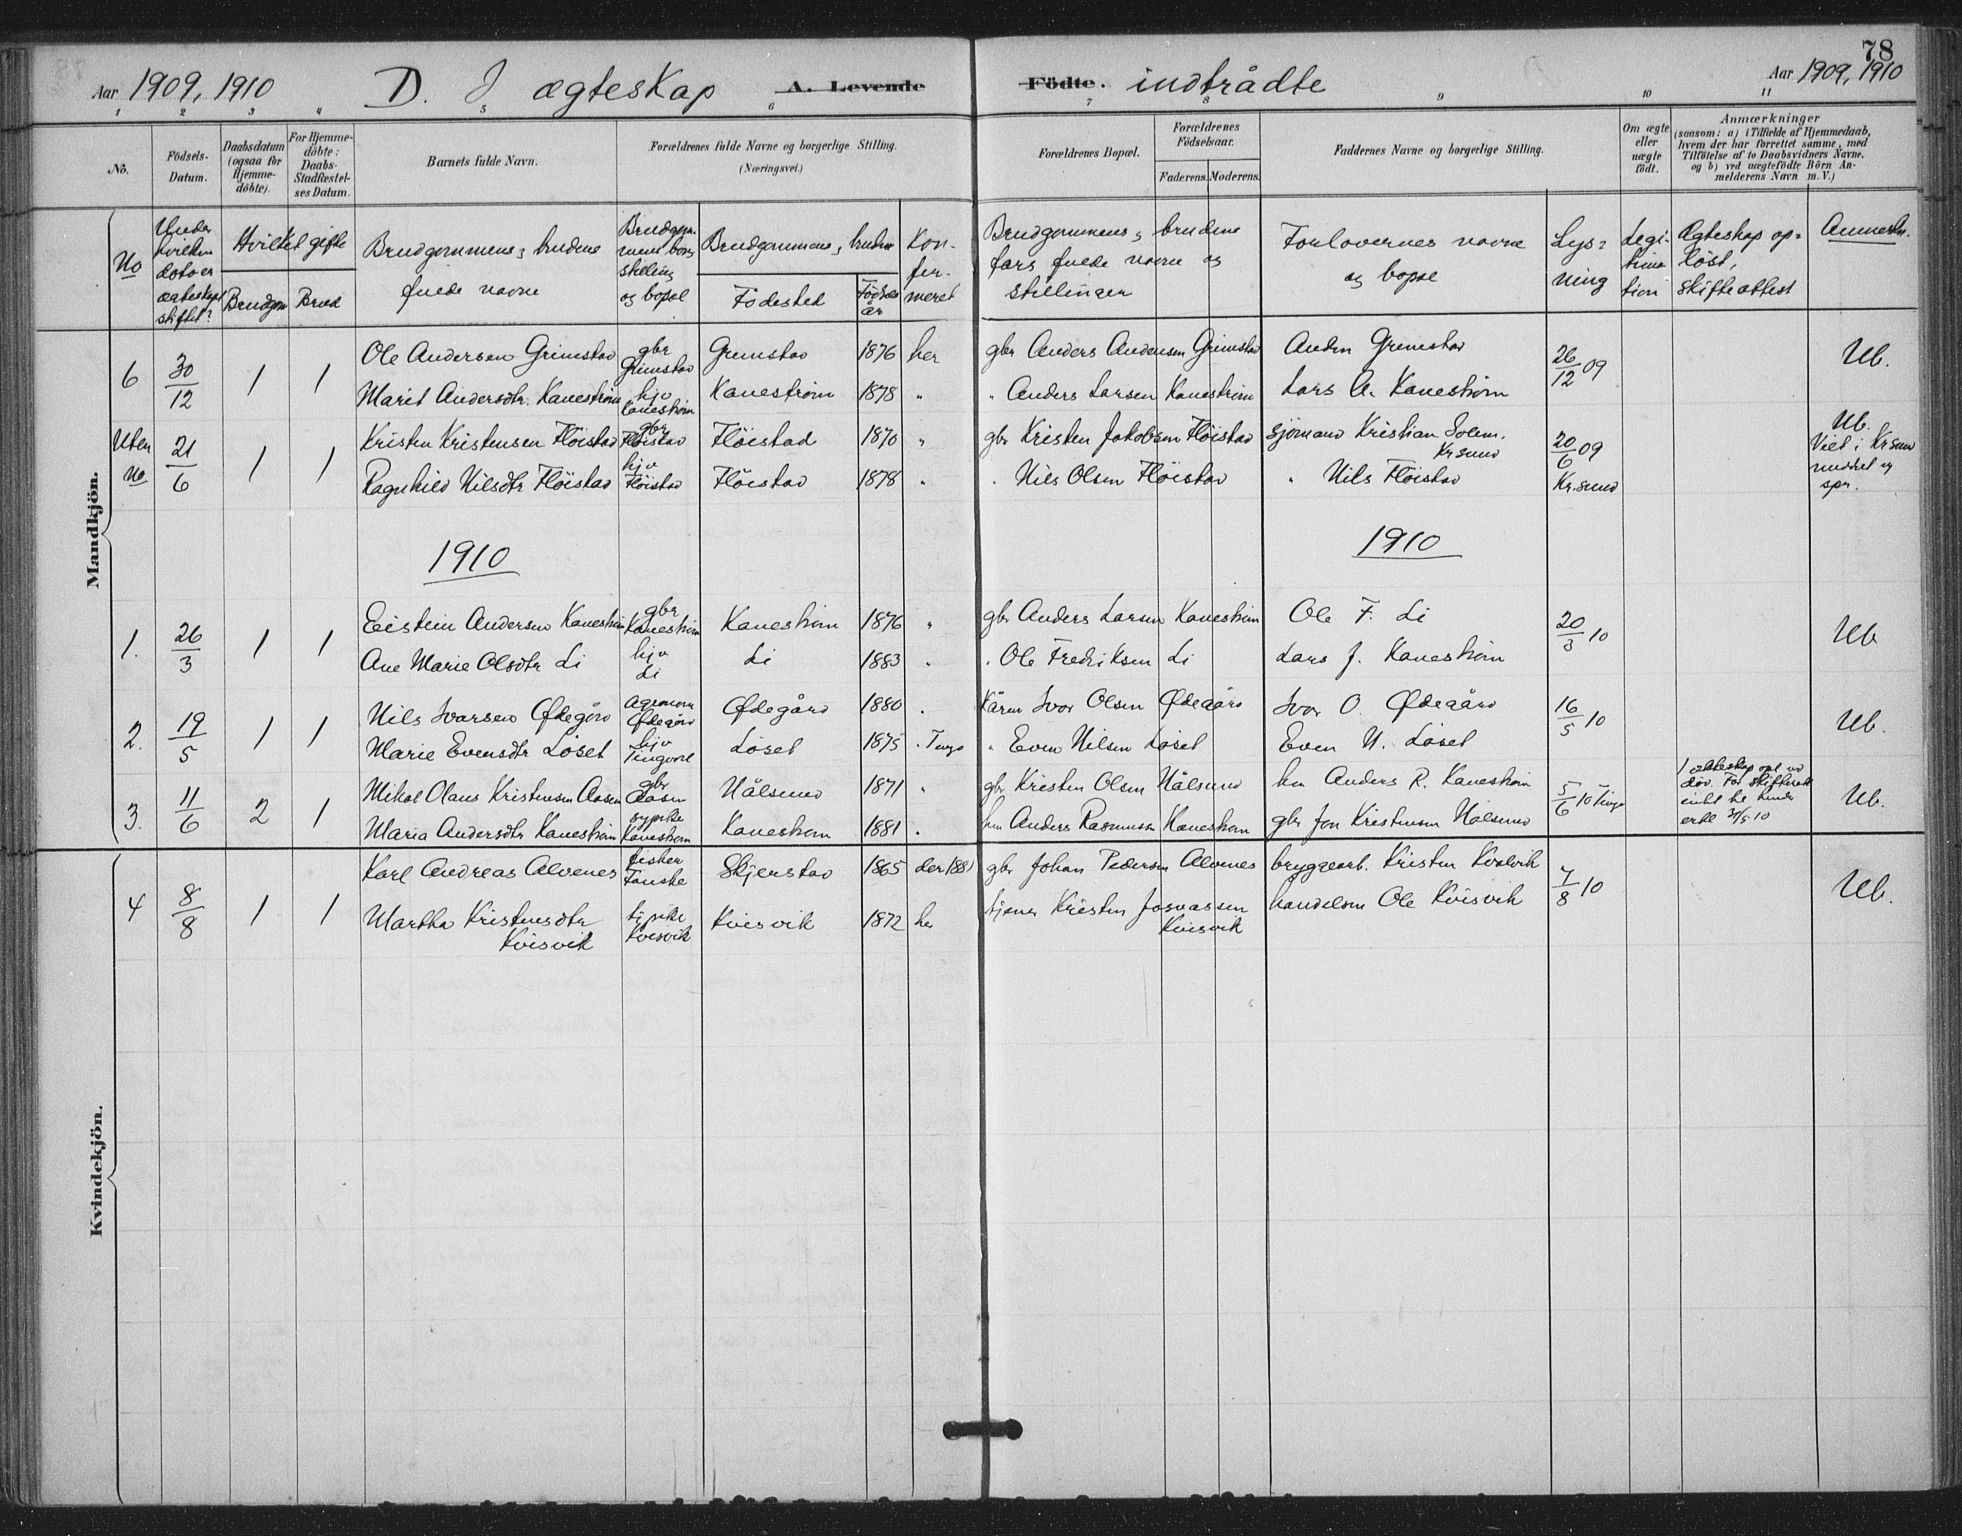 78
Aar 1909, 1910 D. I ægteskap A. Levende Födte. indtrådte Aar 1909, 1910
1 2 3 4 5 6 7 8 9 10 11
No.
Födsels-
Datum.
Daabsdatum
(ogsaa for
Hjemme-
döbte).
For Hjemme-
döbte:
Daabs-
Stadfæstel-
ses Datum.
Barnets fulde Navn.
Forældrenes fulde Navne og borgerlige Stilling.
(Næringsvei.)
Forældrenes Bopæl.
Forældrenes
Födselsaar.
Faderens. Moderens.
Faddernes Navne og borgerlige Stilling.
Om ægte
eller
uægte
födt.
Anmærkninger
(saasom: a) i Tilfælde af Hjemmedaab,
hvem der har forrettet samme, med
Tilföielse af to Daabsvidners Navne,
og b) ved uægtefödte Börn An-
melderens Navn m. V.)
No
Under
hvilken
dato er
ægteskapet
stiftet?
Hvilket gifte
Brudgom Brud
Brudgommens og brudens
fulde navne
Brudgom-
mens borg.
stilling
og bopæl
Brudgommens, brudens
Fødested
Fødsels
år
Kon-
fir-
meret
Brudgommens og brudens
fars fulde navne og
stillinger
Forlovernes navne
og bopæl
Lys-
ning
Legi-
tima
tion
Ægteskap op-
løst,
skifteattest
Anmerkn.
Mandkjön.
6 30/12 1 1 Ole Andersen Grimstad gbr Grimstad Grimstad 1876 her gbr Anders Andersen Grimstad Anders Grimstad 26/12 09 Ub.
Marit Andersdtr. Kanestrøm hjv Kanestrøm Kanestrøm 1878 " " Anders Larsen Kanestrøm Lars A. Kanestrøm
Uten No 21/6 1 1 Kristen Kristensen Fløistad gbr Fløistad Fløistad 1870 " gbr Kristen Jakobsen Fløistad sjømand Kristian Solem. Kr.sund 20/6 09 Kr.sund Ub. Viet i Kr sund
Ragnhild Nilsdtr Fløistad hjv Fløistad Fløistad 1878 " " Nils Olsen Fløistad " Nils Fløistad
1910 1910
1. 26/3 1 1 Eistein Andersen Kanestrøm gbr Kanestrøm Kanestrøm 1876 " gbr Anders Larsen Kanestrøm Ole F. Li 20/3 10 Ub
Ane Marie Olsdtr Li hjv Li Li 1883 " " Ole Fredriksen Li Lars J. Kanestrøm
2. 19/5 1 1 Nils Ivarsen Ødegård agronom Ødegård Ødegård 1880 " Kårm Ivar Olsen Ødegård Ivar O. Ødegård 16/5 10 Ub.
Marie Evensdtr Løset hjv Tingvoll Løset 1875 " Tingv " Even Nilsen Løset Even N. Løset
3. 11/6 2 1 Mikal Olaus Kristensen Aasen gbr Aasen Nålsund 1871 " gbr Kristen Olsen Nålsund hm Anders R. Kanestrøm 5/6 10 Tingv Ub.
Maria Andersdtr Kanestrøm sypike Kanestrøm Kanestrøm 1881 " hm Anders Rasmussen Kanestrøm gbr Jon Kristensen Nålsund
4 8/8 1 1 Karl Andreas Alvenes fisker Fauske Skjerstad 1865 der 1881 gbr Johan Pedersen Alvenes bryggearb. Kristen Kvisvik 7/8 10 Ub.
Martha Kristensdtr Kvisvik sypike Kvisvik Kvisvik 1872 her Kristen Josvassen Kvisvik handelsm Ole Kvisvik
Kvindekjön.